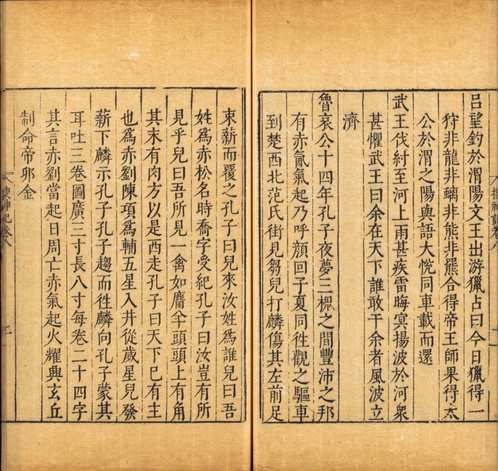 呂望釣於渭陽文王出游獵占曰今日獵得一
狩非龍非螭非熊非羆合得帝王師果得太
公於渭之陽與語大悅同車載而還
武王伐紂至河上雨甚疾雷晦冥揚波於河衆
甚懼武王曰余在天下誰敢干余者風波立
濟
魯哀公十四年孔子夜夢三槐之間豐沛之邦
有赤氤氣起乃呼顏回子夏同往觀之驅車
到楚西北范氏街見芻兒打麟傷其左前足
束薪而覆之孔子曰兒來汝姓爲誰兒曰吾
姓爲赤松名時喬字受紀孔子曰汝豈有所
見乎兒曰吾所見一禽如麕羊頭頭上有角
其末有肉方以是西走孔子曰天下已有主
也爲赤劉陳項爲輔五星入井從歲星兒發
薪下麟示孔子孔子趨而往麟向孔子蒙其
耳吐三卷圖廣三寸長八寸每卷二十四字
其言赤劉當起日周亡赤氣起火耀興玄丘
制命帝卯金